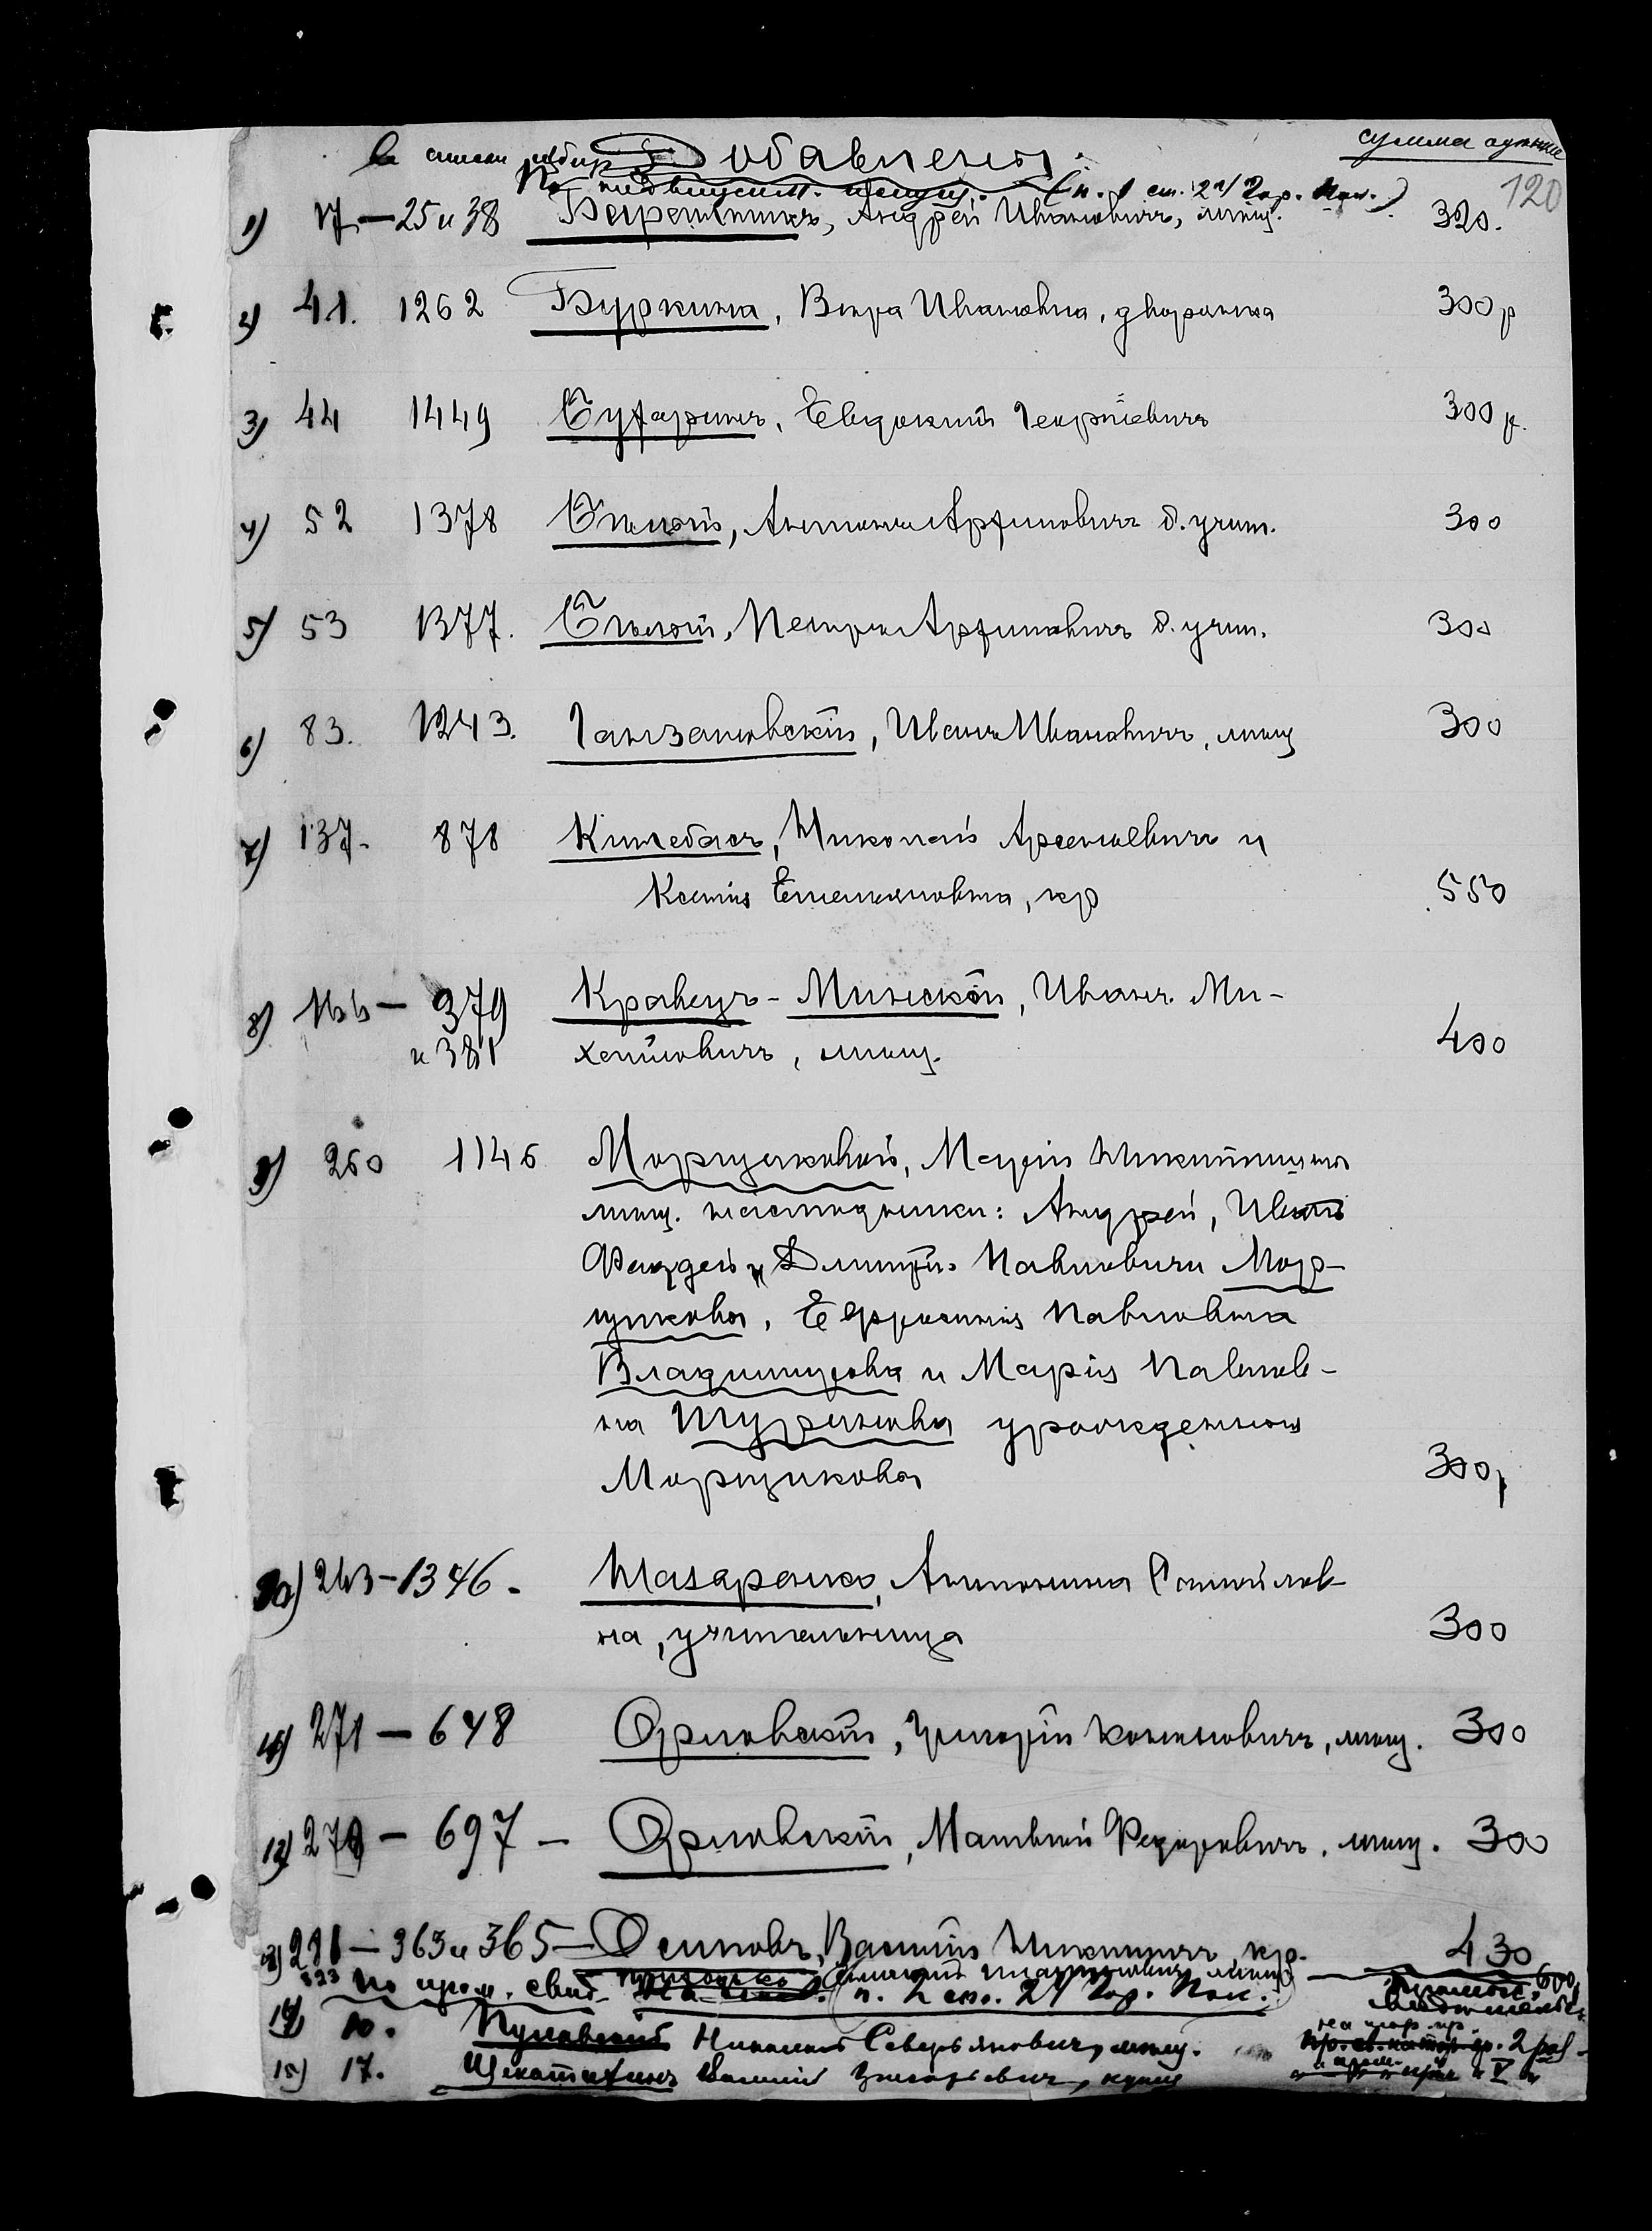 въ списки избир. Добавлены. сумма оцѣнки
По недвижим. имущ. (п. 1 ст. 24 Гор. Пол.) 120
1) 17 — 25 и 38 Андрей Ивановичъ, мѣщ. 320.
2) 41. 1262 Буркина, Вѣра Ивановна, дворянка 300 р
3) 44 1449 Бухаринъ, Евдокій Георгіевичъ 300 р.
4) 52 1378 Бѣлый, Антонъ Арефиловичъ д. учит. 300
5) 53 1377. Бѣлый, Петръ д. учит. 300
6) 83. 1243. Ганзановскій, Иванъ Ивановичъ, мѣщ 300
7) 137. 878 Николай Арсеньевичъ и
Ксенія Емельяновна, кр 550
8) 166 — 379 Кравецъ-Минскій, Иванъ Ми-
и 381 хайловичъ, мѣщ. 400
9) 260 1146 Морщиковой, Маріи Никитишны
мѣщ. наслѣдники: Андрей, Иванъ
Фаддей и Дмитрій Павловичи Мор-
щиковы, Ефросинія Павловна
Владимирова и Марія Павлов-
на Шуринова урожденныя
Морщиковы 300 р
10) 263 — 1346. Назаренко, Антонина Самойлов-
на, учительница 300
11) 271 — 648 Орловскій, Григорій Кононовичъ, мѣщ. 300
12) 270 — 697 — Орловскій, Матвѣй Федоровичъ, мѣщ. 300
13) 281 — 363 и 365 — Осиповъ, Василій Никитичъ, кр. 430
323 Платоновичъ мѣщ 600
По пром. свид. (п. 2 ст. 24 Гор. Пол.)
14) 10. Пулавскій Николай Северьяновичъ, мѣщ. 2 раз.
15) 17. Щекатихинъ Василій Григорьевичъ, купец V